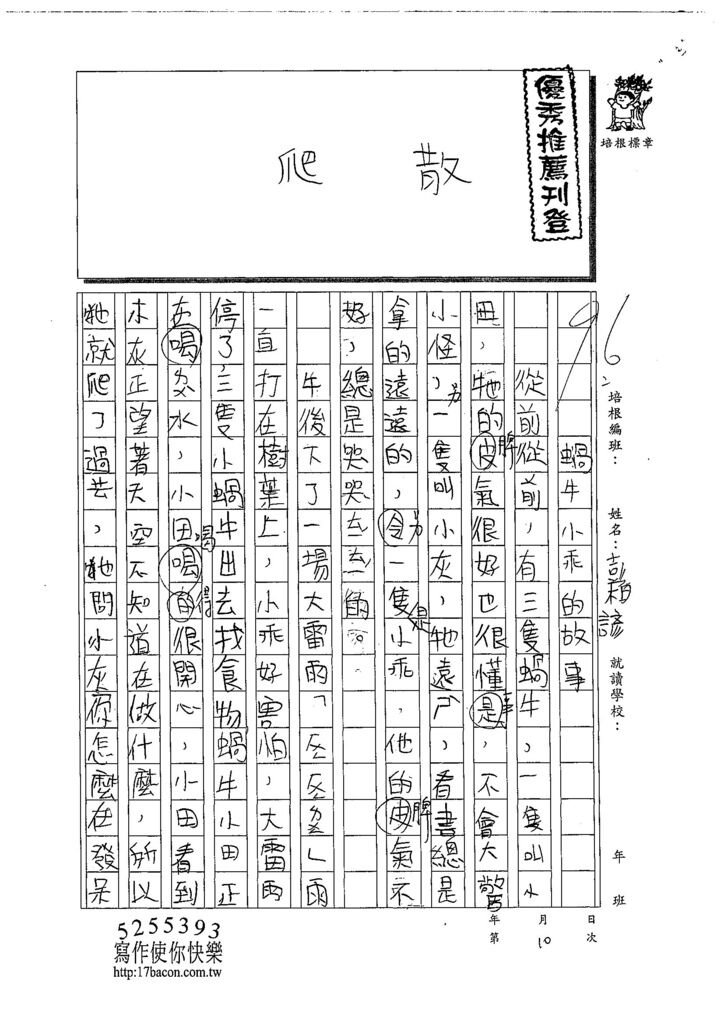 優秀推薦刊登
培根標章
散 爬
96
培根編班：
姓名：彭
就讀學校：
年 班
蝸牛小乖的故事
從前從前，有三隻蝸牛，一隻叫小
田，牠的皮氣很好也很懂是，不會大驚
脾 事
小怪，一隻叫小灰，牠遠ㄕ，看書總是
拿的遠遠的，令一隻小乖，他的皮氣不
另 是 脾
好，總是哭哭ㄊㄊ的
牛後下了一場大雷雨「 」雨
一直打在樹葉上，小乖好害怕，大雷雨
停了，三隻小蝸牛出去找食物蝸牛小田正
在喝 水，小田喝的很開心，小田看到
喝 得
木灰正望著天空不知道在做什麼，所以
牠就爬了過去，牠問小灰你怎麼在發呆
年 月 日
第 10 次
5255393
寫作使你快樂
http:17bacon.com.tw